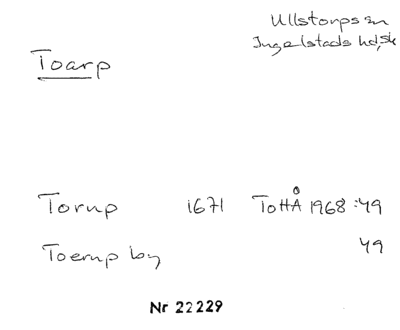 Ullstorps sn
Ingelstads hd, Sk
Toarp
Torup 1671 TottÅ 1968:49
Toerup by 49
Nr 22229